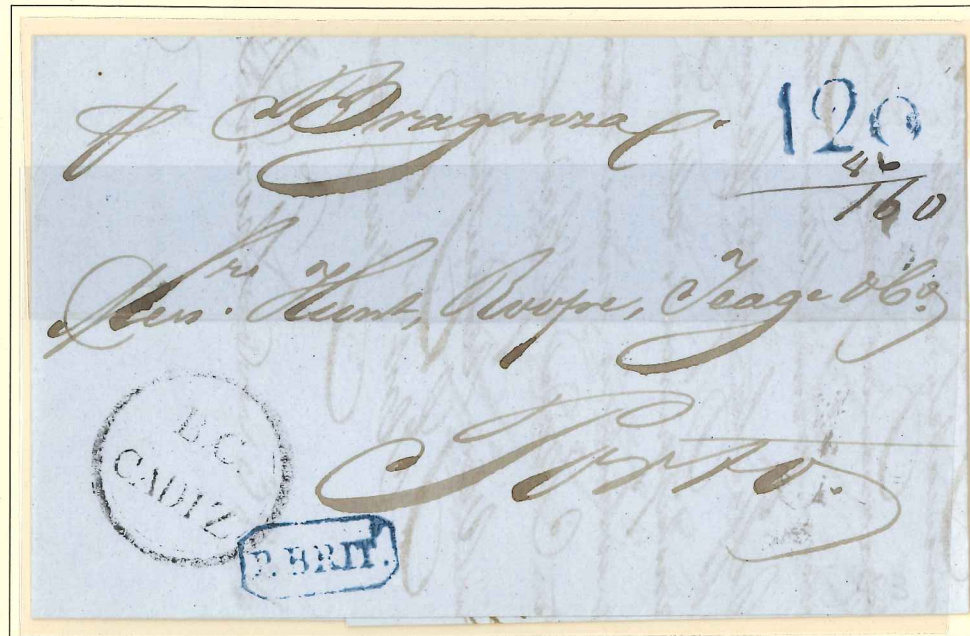 p Braganza
120
40
160
Messrs. Hunt, Roope, Teage & Co.
Porto.
B.C.
CADIZ
P. BRIT.